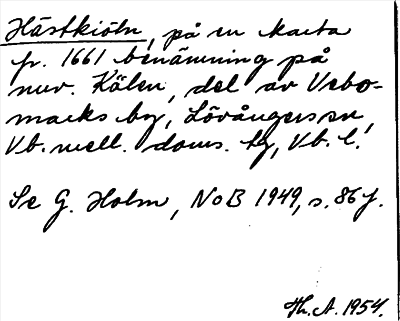 Hästkiöln, på en karta
fr. 1661 benämning på
nuv. Kälen, del av Vebo-
marks by, Lövångers sn,
Vb. mell. doms. tg, Vb. l.
Se G. Holm, NoB 1949, s. 86 f.
Th. A. 1954.